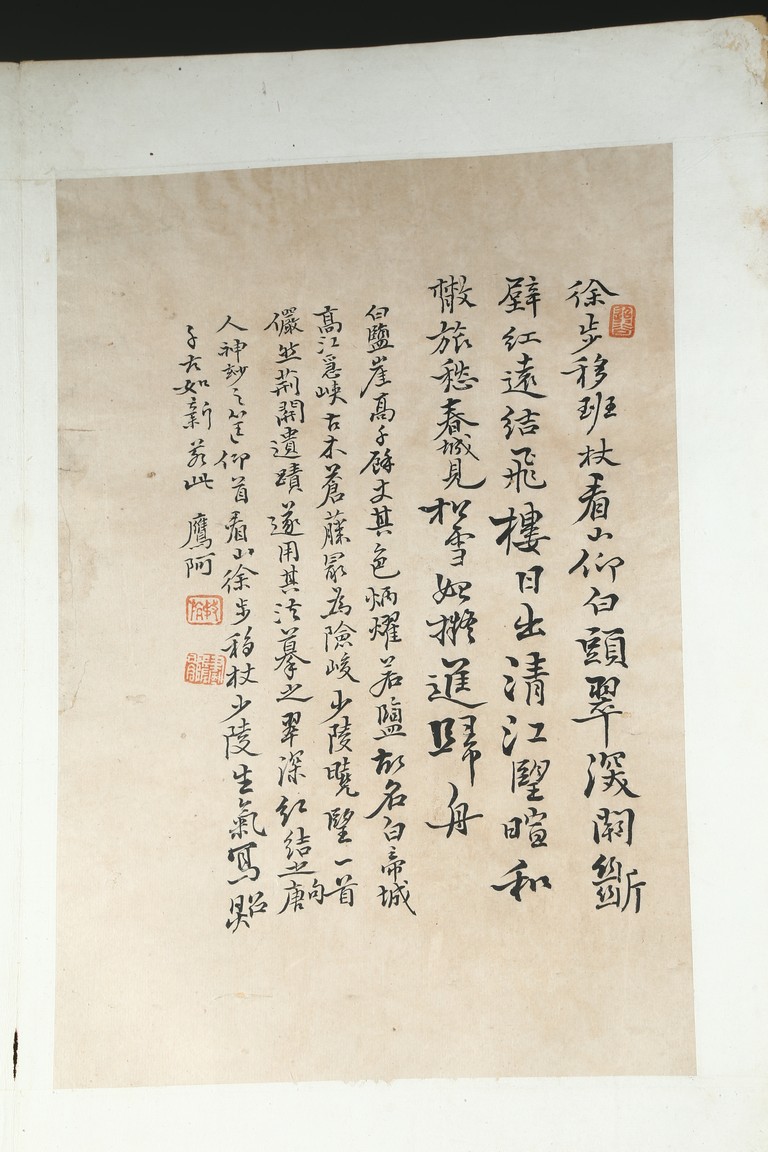 徐步移班杖看山仰白頭翠深開斷
壁紅遠結飛樓日出清江望暄和
散旅愁春城見松雪始擬進歸舟
白鹽崖高千餘丈其色炳耀若鹽故名白帝城
高江急峽古木蒼藤最為險峻少陵曉望一首
儼然荊關遺蹟遂用其法摹之翠深紅結之句唐
人神妙之筆仰首看山徐步移杖少陵生氣寫照
千古如新若此 鷹阿